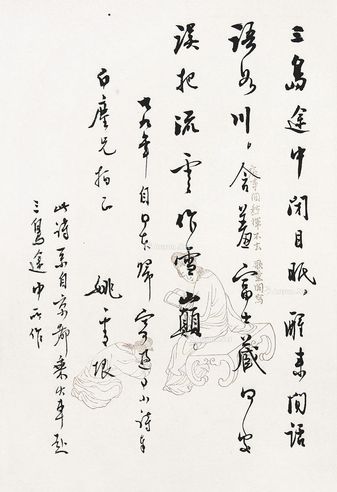 三島途中閉目眠，醒来閒話
語如川，含羞富士藏何處
误把流雲作雪巔
七九年自日本歸寄 日小詩奉
白塵兄拍正
姚雪垠
此詩系自京都乘火車赴
三島途中所作